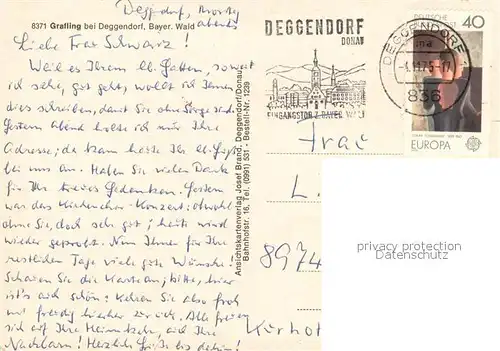 Deggdorf, Montag
abends
8371 Grafling bei Deggendorf, Bayer. Wald
Liebe Frau Schwarz!
Weil es Ihrem lb. Gatten, soweit
ich sehe, gut geht, wollt ich Ihnen
dies schreiben, damit Sie ohne Sorge sind.
Gestern abend holte ich mir Ihre
Adresse; da kam heute Ihr lb.
bei uns an. Haben Sie vielen Dank
für Ihr treues Gedenken. Gestern
war das Kirchenchor-Konzert: obwohl
ohne Sie, doch sehr gut; heute wird
wieder geprobt. Nun Ihnen für Ihre
restlichen Tage viele gute Wünsche.
Schauen Sie die Karte an; bitte, hier
ist's auch schön! Kehren Sie also froh
und freudig hierher zurück. Alle freuen
sich auf Ihre Heimkehr, auch Ihre
Nachbarn! Herzliche Grüße bis dahin!
Ansichtskartenverlag Josef Brand, Deggendorf/Donau
Bahnhofstr. 16, Tel. (0991) 531 - Bestell-Nr. 1229
DEGGENDORF
DONAU
EINGANGSTOR Z. BAYER. WALD
DEGGENDORF 1
836
DEUTSCHE
40
EUROPA
Frau
L.
8974
privacy protection
Datenschutz